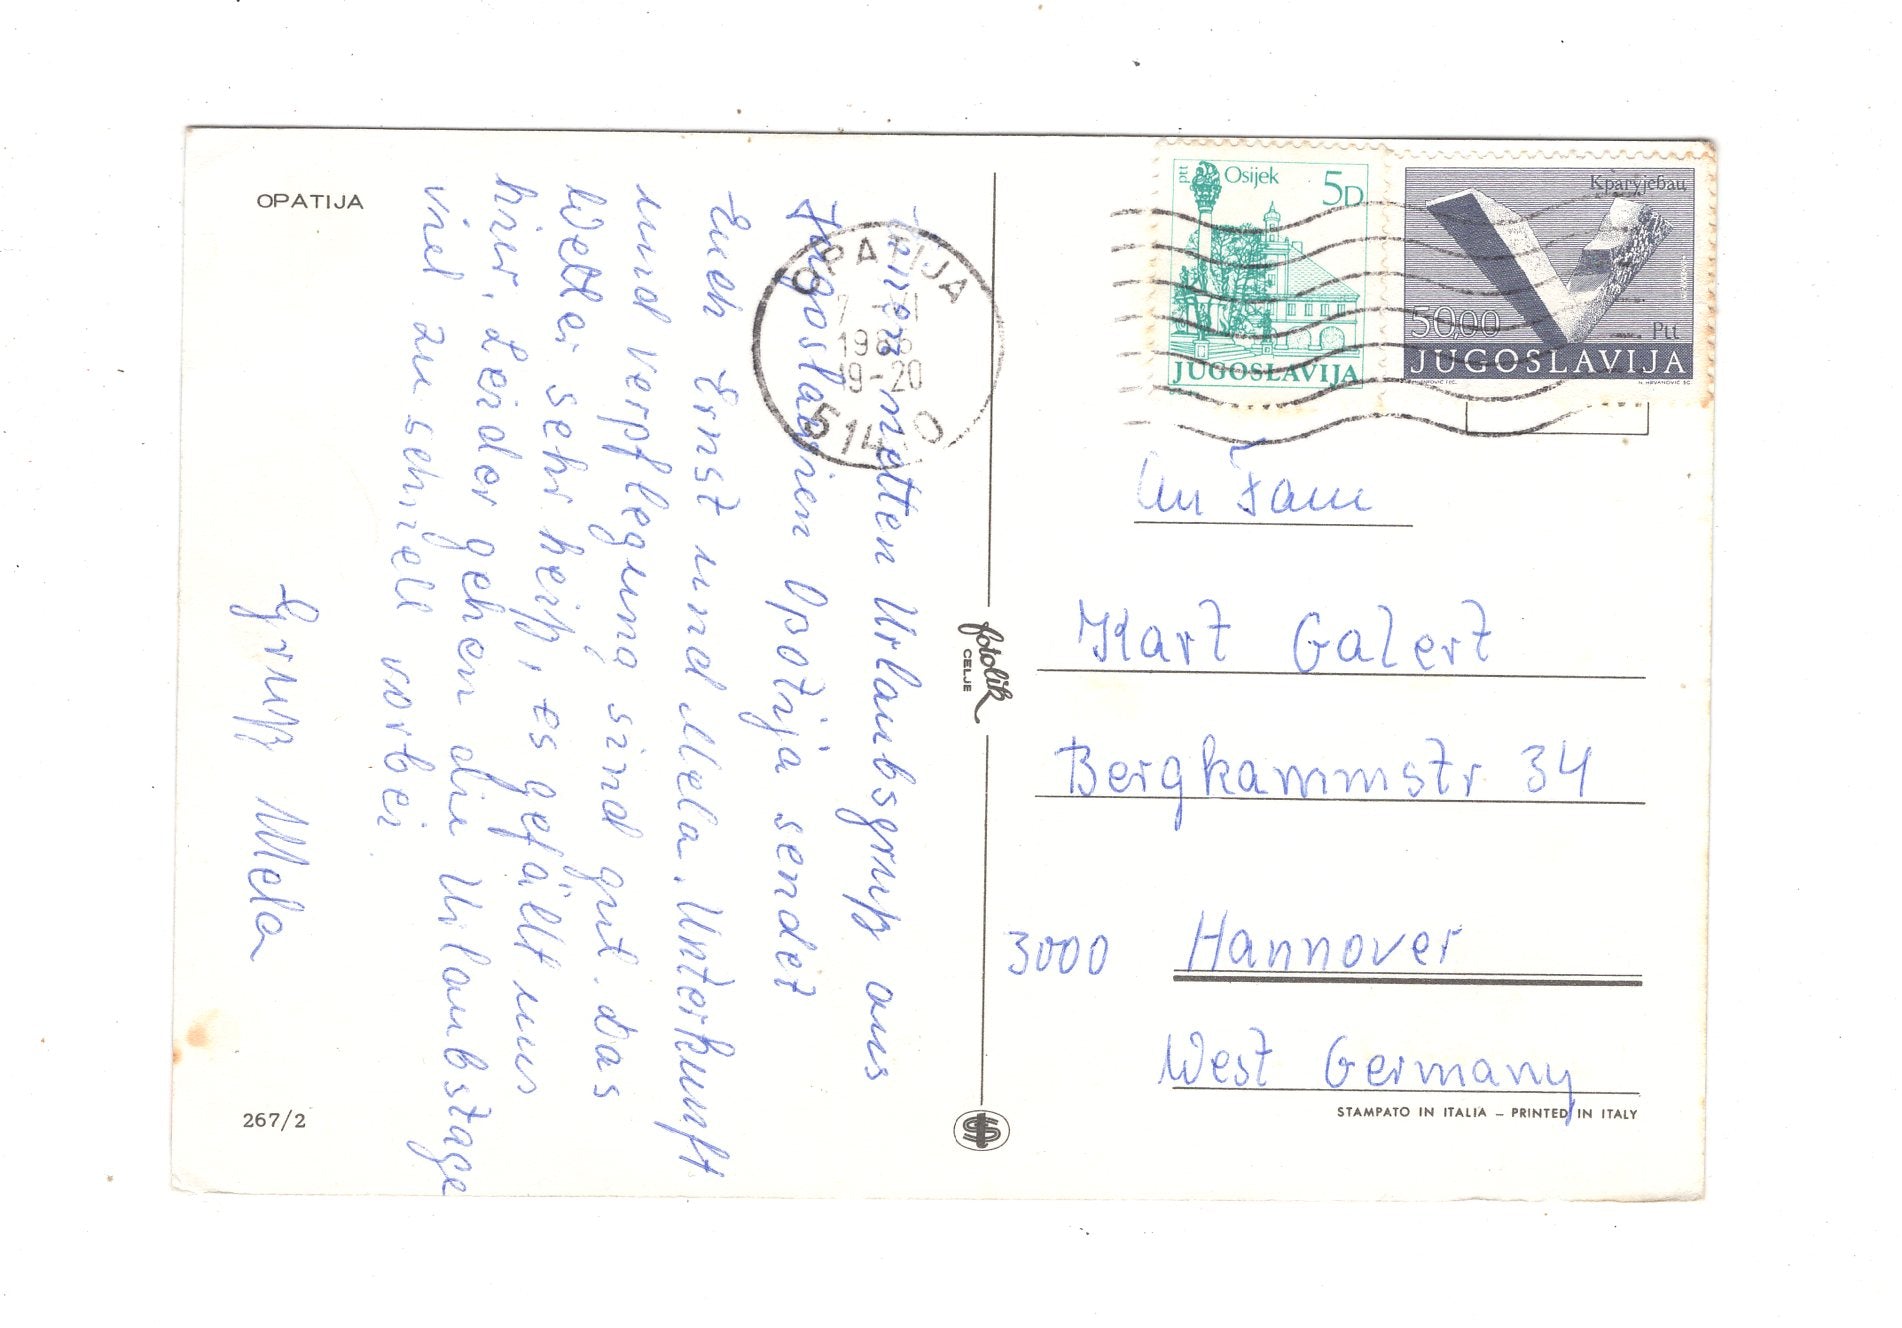 OPATIJA
Einen netten Urlaubsgruß aus
Jugoslavien Opatija sendet
Euch Ernst und Mela. Unterkunft
und Verpflegung sind gut. Das
Wetter sehr heiß, es gefällt uns
hier. Leider gehen die Urlaubstage
viel zu schnell vorbei
Gruß Mela
267/2
OPATIJA
1986
19-20
fotolik
CELJE
ptt Osijek 5D
JUGOSLAVIJA
Крагујевац
50,00 Ptt
JUGOSLAVIJA
An Fam
Kart Galert
Bergkammstr 34
3000 Hannover
West Germany
STAMPATO IN ITALIA – PRINTED IN ITALY